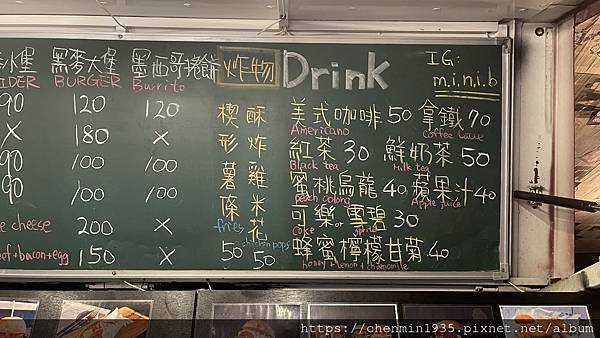 黑麥大堡 墨西哥捲餅 炸物 Drink IG:
IDER BURGER Burrito m.i.n.i.b
90 120 120
X 180 X
90 100 100
90 100 100
e cheese 200 X
ef+bacon+egg 150 X
楔形薯條
fries
50
酥炸雞米花
chicken pops
50
美式咖啡 50 拿鐵 70
Americano
紅茶 30 鮮奶茶 50
Black tea Milk tea
蜜桃烏龍 40 蘋果汁 40
peach oolong Apple juice
可樂or雪碧 30
coke sprite
蜂蜜檸檬甘菊 40
honey+lemon+chamomile
https://chenmin1935.pixnet.net/album